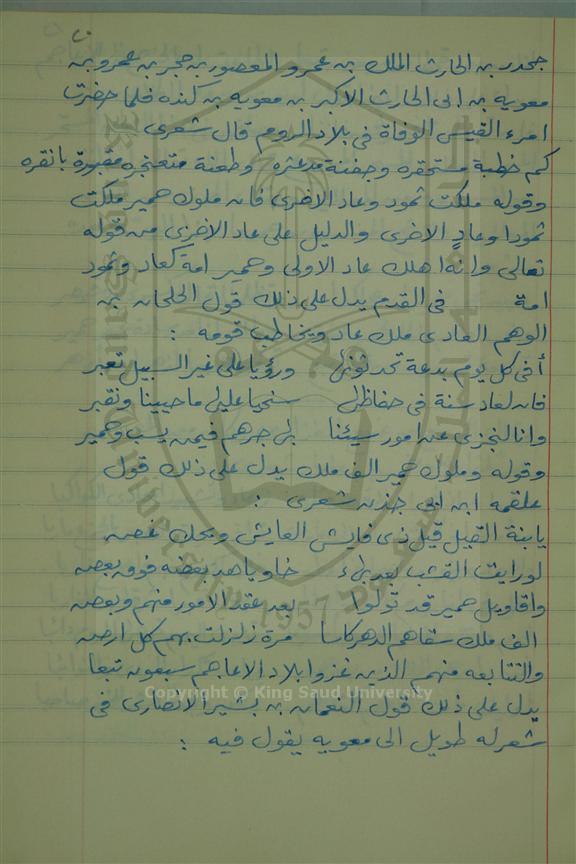 جحدر بن الحارث الملك بن عمرو المعصور بن حجر بن عمرو بن
معويه بن ابى الحارث الاكبر بن معويه بن كنده فلما حضرت
امرء القيس الوفاة فى بلاد الروم قال شعرى
كم خطبة مستحقره وجفنة مدعثره وطعنة متعنجره مقبورة بانقره
وقوله ملكت ثمود وعاد الاخرى فان ملوك حمير ملكت
ثمودا وعادٍ الاخرى والدليل على عاد الاخرى من قوله
تعالى وانه اهلك عاد الاولى وحمير امة كعاد وثمود
امة فى القدم يدل على ذلك قول الحلحان بن
الوهم العادى ملك عاد ويخاطب قومه :
أفى كل يوم بدعة تحدثونها ورؤيا على غير السبيل تعبر
فان لعاد سنة فى حفاظل سنحيا عليل ما حيينا ونقبر
وانا لنجزى عن امور سيئنا بل جرهم فيمن يسب وحمير
وقوله وملوك حمير الف ملك يدل على ذلك قول
علقمه ابن ابى جذن شعرى :
يابنة القيل قيل ذى فايش العايش ويحك غصه
لو رايت القشب بعد خاويا هد بعضه فوق بعصه
واقاويل حمير قد تولوا بعد عقد الامور منهم وبعصه
الف ملك سقاهم الدهر كاسا مرة زلزلت بهم كل ارصه
والتتابعه منهم الذين غزوا بلاد الاعاجم سبعون تبعا
يدل على ذلك قول النعمان بن بشير الانصارى فى
شعر له طويل الى معويه يقول فيه :
Copyright © King Saud University
1957